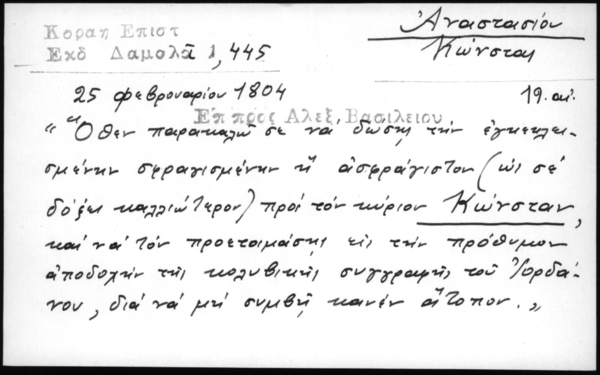 Κοραη Επιστ
Εκδ Δαμαλᾶ 1,445
Ἀναστασίου
Κώνστα
25 φεβρουαρίου 1804
19. αἰ.
Επ πρὸς Αλεξ. Βασιλειου
"Ὅθεν παρακαλῶ σε νὰ δώσῃς τὴν ἐγκεκλει-
σμένην σφραγισμένην ἢ ἀσφράγιστον (ὡς σὲ
δόξει καλλιώτερον) πρὸς τὸν κύριον Κώνσταν,
καὶ νὰ τὸν προετοιμάσῃς εἰς τὴν πρόθυμον
ἀποδοχὴν τῆς κολυβικῆς συγγραφῆς τοῦ Ἰορδά-
νου, διὰ νὰ μὴ συμβῇ κανὲν ἄτοπον."